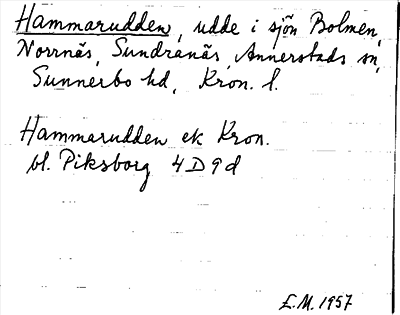 Hammarudden, udde i sjön Bolmen,
Norrnäs, Sundranäs, Annerstads sn,
Sunnerbo hd, Kron. l.
Hammarudden ek Kron.
bl. Piksborg 4D9d
E.M. 1957